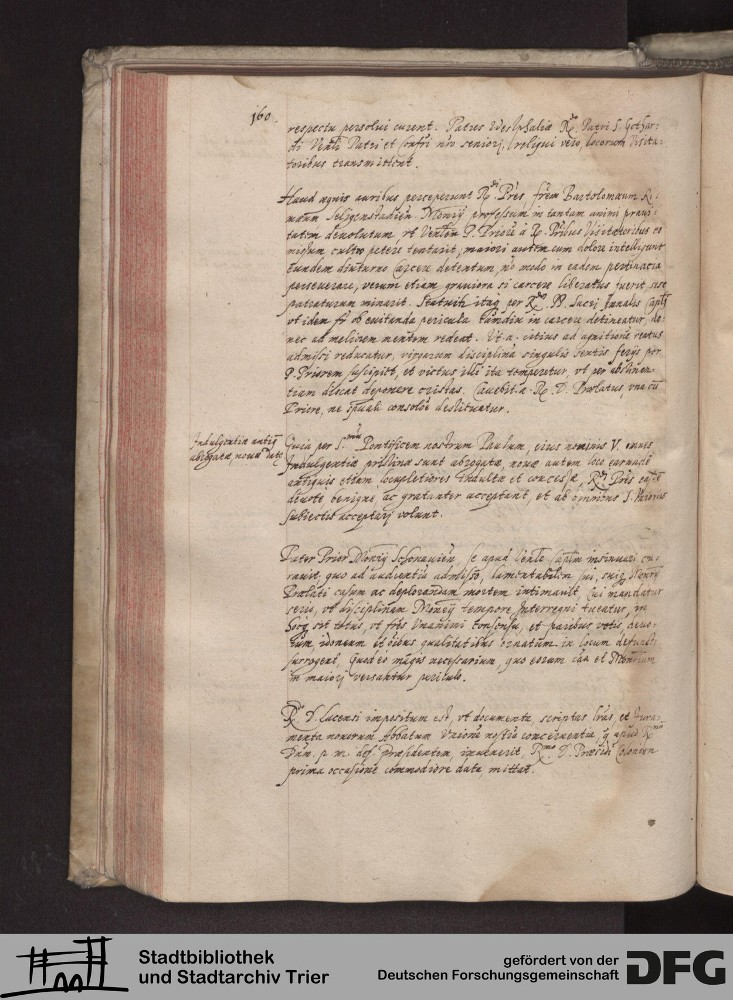 160.
respectu persolui curent. Patres Westphaliæ Rdo. Patri S. Gothar:
di Venli Patri et confri nro seniori, reliqui vero, locorum Visita:
toribus transmittent.
Haud æquis auribus perceperunt Rdi Pres, frem Bartolomæum
Seligenstadien. Monrij professum in tantam animi praui:
tatem deuolutum, vt Venlem P. Priore à R. Pribus Visitatoribus
missum cultro petere tentarit, maiori autem cum dolore intelligunt
eundem diuturno carcere detentum, no modo in eadem pertinacia
perseuerare, verum etiam grauiora si carcere liberatus fuerit, sese
patraturum minarit. Statuit itaq per Rdos PP. Sacri Annalis Capli
vt idem fr ob euitanda pericula tamdiu in carcere detineatur, do:
nec ad meliorem mentem redeat. Vt a. citius ad agnitione reatus
admissi reducatur, virgarum disciplina singulis sextis ferijs per
P. Priorem suscipiet, et victus illi ita temperetur, vt per abstinen:
tiam discat deponere cristas. Cauebit a. R. D. Prælatus, vna cu
Priore, ne spuali consolõe destituatur.
Indulgentiæ antiq
abrogatæ, nouæ datæ
Quia per S.mum Pontificem nostrum Paulum, eius nominis V. omnes
Indulgentiæ pristinæ sunt abrogatæ, nouæ autem loco earundē
antiquis etiam locupletiores indultæ et concessæ, Rdi Pres easdē
deuote benigne ac gratanter acceptant, et ab omnibus S. Vnionis
subiectis acceptari volunt.
Pater Prior Monrij Schonauien, se apud Venle Caplm insinuari cu:
rauit, quo ad audientiā admisso, lamentabilem sui, suiq Monrij
Prælati casum ac deplorandam mortem intimauit, Cui mandatur
serio, vt disciplinam Monrij tempore Interregni tueatur, in
hoc sit totus, vt frēs vnanimi consensu, et paribus votis deuo:
tum, idoneum et oibus qualitatibus ornatum in locum defuncti
surrogent, Quod eò magis necessarium, quo eorum iura et Monrium
in maiori versantur periculo.
R. D. Lacensi impositum est, vt documenta, scriptas lrās, et iura:
menta nouorum Abbatum Vnionē nostrā concernentia, q apud Rmum
Dum. p. m. def. Præsidentem inuenerit, Rmo. D. Præsidi Colonien
prima occasione commodiore data, mittat.
Stadtbibliothek
und Stadtarchiv Trier
gefördert von der
Deutschen Forschungsgemeinschaft
DFG